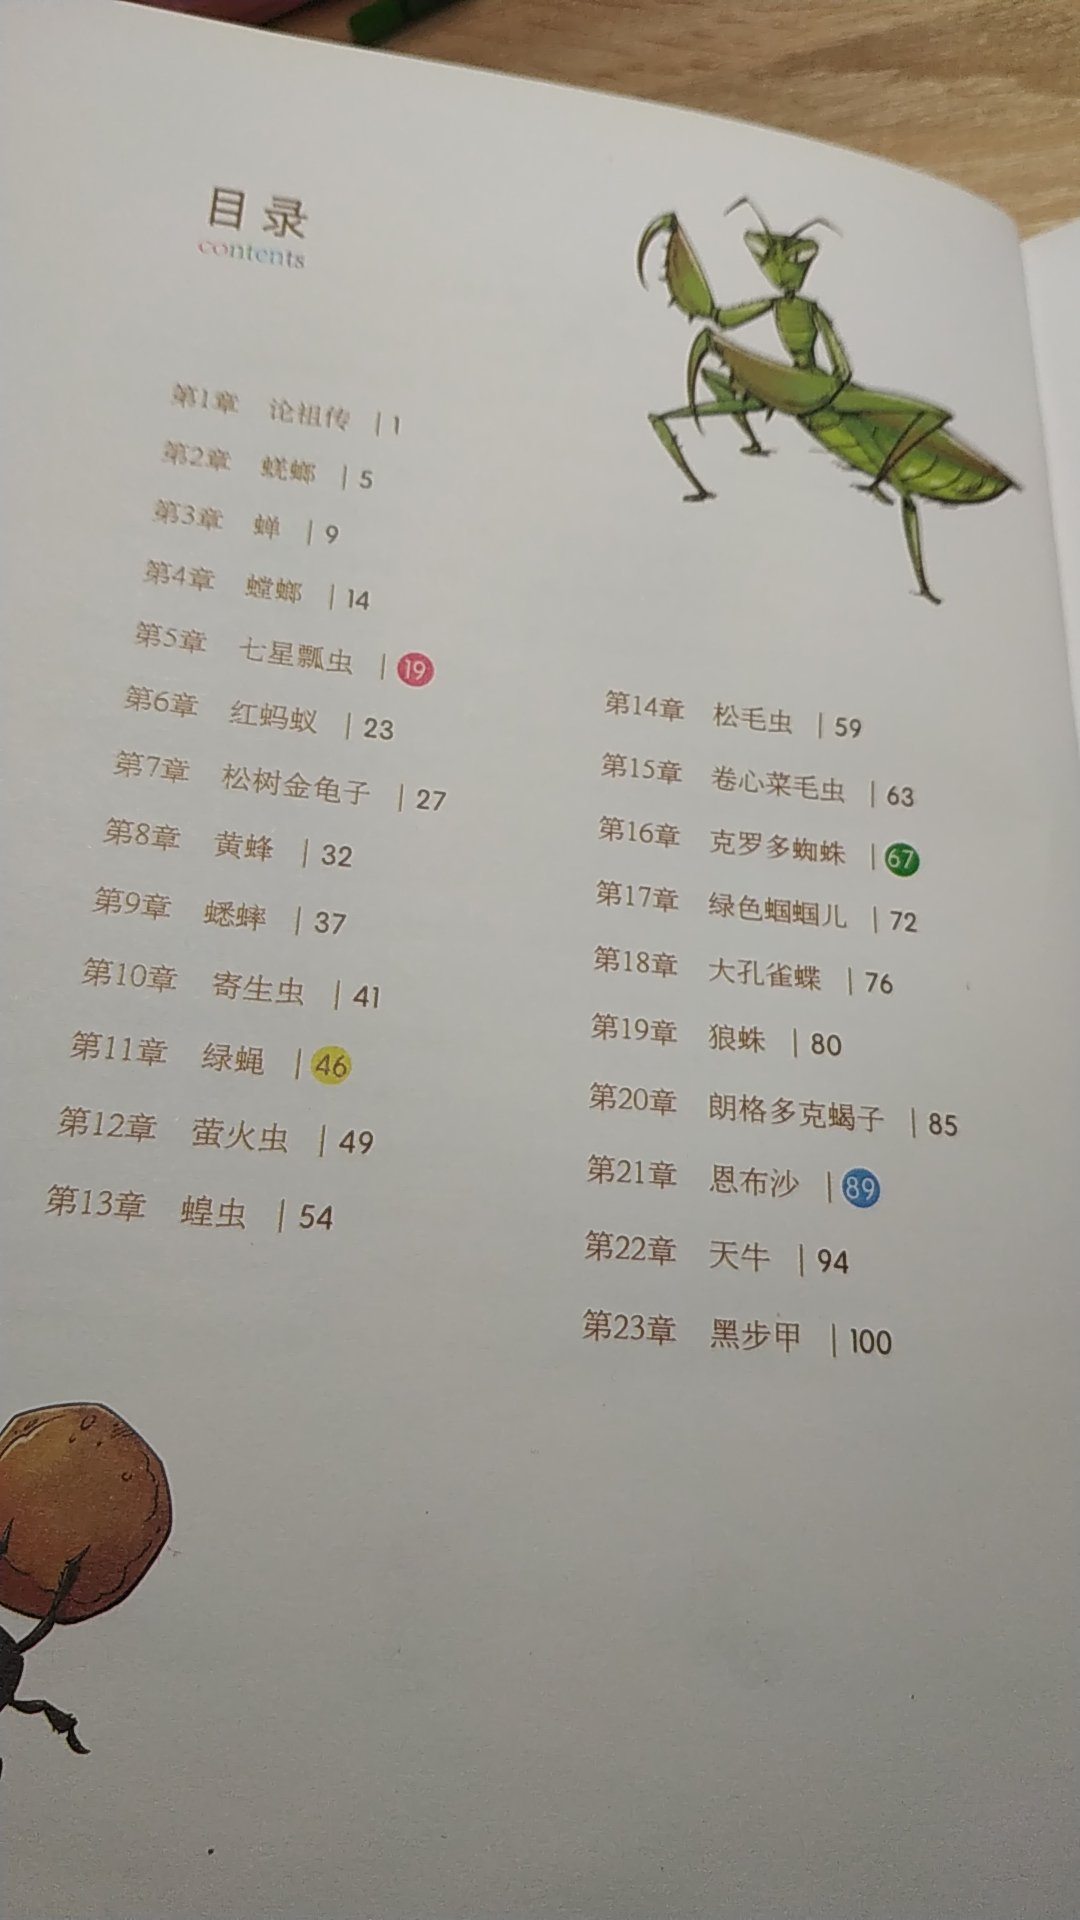 目录
contents
第1章 论祖传 | 1
第2章 蜣螂 | 5
第3章 蝉 | 9
第4章 螳螂 | 14
第5章 七星瓢虫 | 19
第6章 红蚂蚁 | 23
第7章 松树金龟子 | 27
第8章 黄蜂 | 32
第9章 蟋蟀 | 37
第10章 寄生虫 | 41
第11章 绿蝇 | 46
第12章 萤火虫 | 49
第13章 蝗虫 | 54
第14章 松毛虫 | 59
第15章 卷心菜毛虫 | 63
第16章 克罗多蜘蛛 | 67
第17章 绿色蝈蝈儿 | 72
第18章 大孔雀蝶 | 76
第19章 狼蛛 | 80
第20章 朗格多克蝎子 | 85
第21章 恩布沙 | 89
第22章 天牛 | 94
第23章 黑步甲 | 100